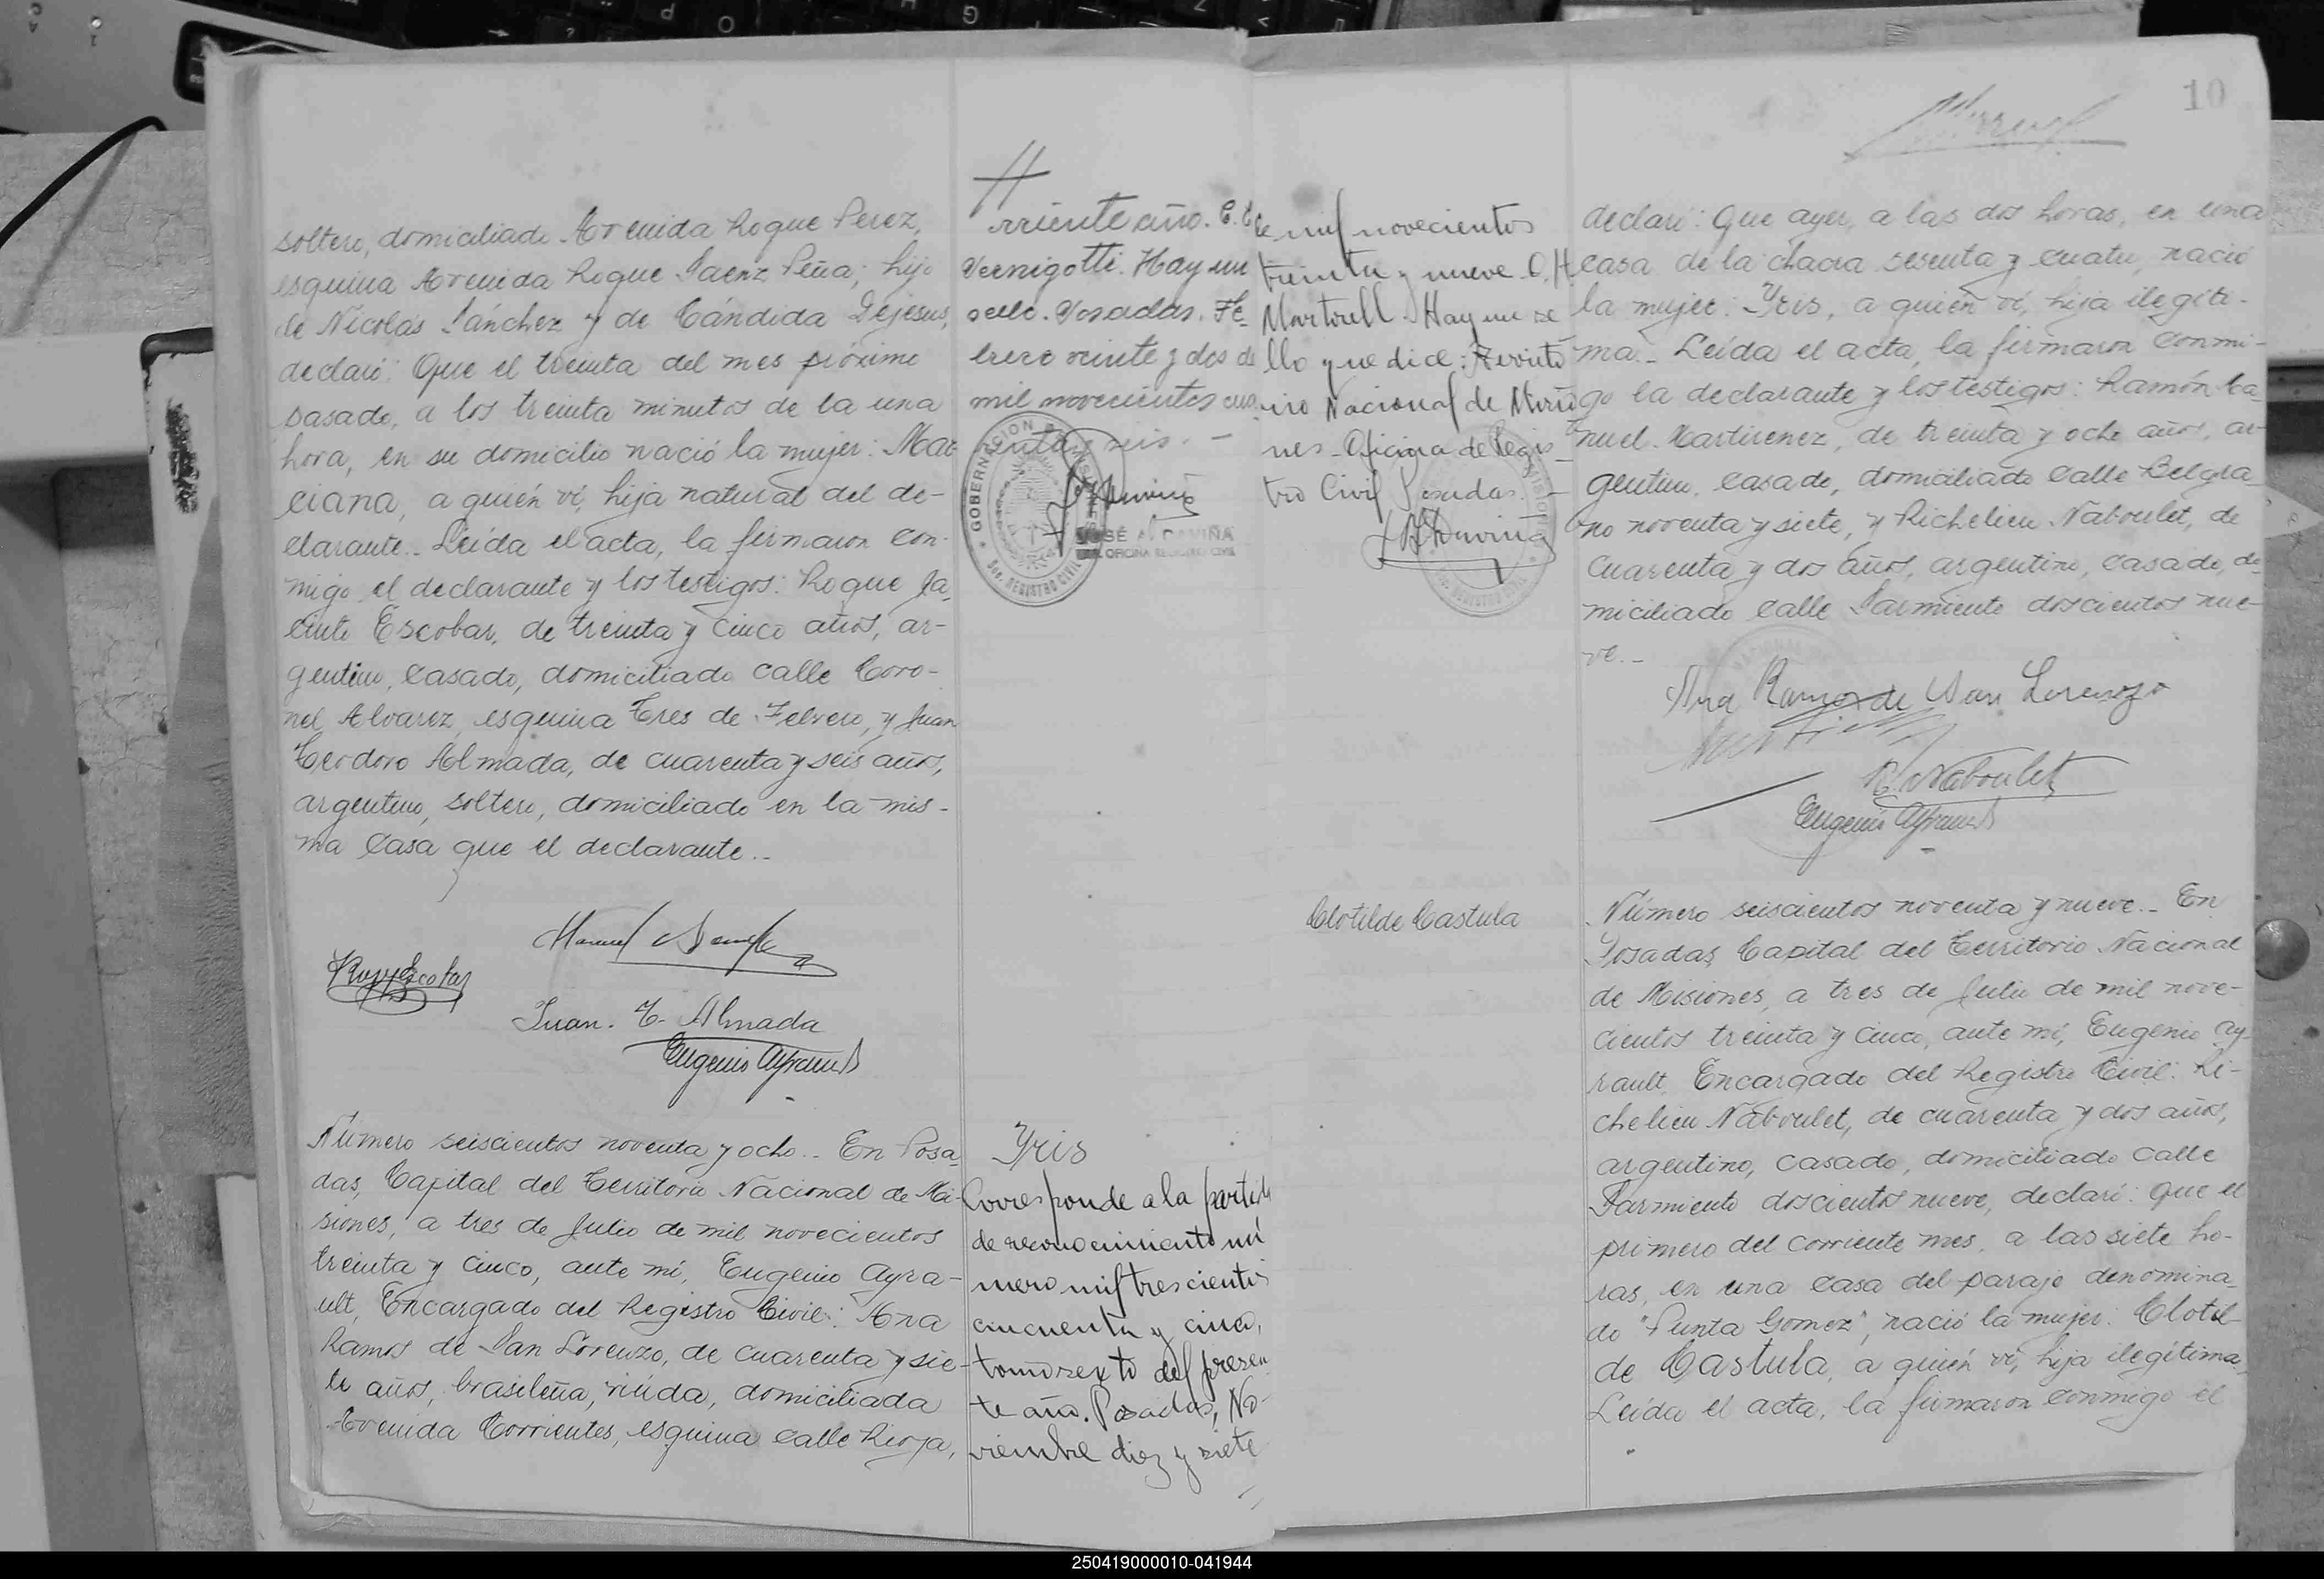 soltero, domiciliado Avenida Roque Perez,
esquina Avenida Roque Saenz Peña; hijo
de Nicolás Sánchez y de Cándida Dejesus,
declaró: Que el treinta del mes próximo
pasado, a los treinta minutos de la una
hora, en su domicilio nació la mujer: Mar
ciana, a quién ví, hija natural del de-
clarante.- Leída el acta, la firmaron con-
migo el declarante y los testigos: Roque Ja-
cinto Escobar, de treinta y cinco años, ar-
gentino, casado, domiciliado calle Coro-
nel Alvarez, esquina Tres de Febrero, y Juan
Teodoro Almada, de cuarenta y seis años,
argentino, soltero, domiciliado en la mis-
ma casa que el declarante.-
Juan. T. Almada
Eugenio Ayrault
Número seiscientos noventa y ocho.- En Posa-
das, Capital del Territorio Nacional de Mi-
siones, a tres de Julio de mil novecientos
treinta y cinco, ante mí, Eugenio Ayra-
ult, Encargado del Registro Civil: Ana
Ramos de San Lorenzo, de cuarenta y sie-
te años, brasileña, viúda, domiciliada
Avenida Corrientes, esquina calle Rioja,
rriente año. E. E.
Vernigotti. Hay un
sello. Posadas. Fe-
brero veinte y dos de
mil novecientos cua-
renta y seis. -
GOBERNACION
REGISTRO CIVIL
JOSÉ A. DAVIÑA
OFICINA REGISTRO CIVIL
Yris
Corresponde a la partida
de reconocimiento nú
mero mil trescientos
cincuenta y cinco,
tomo sexto del presen
te año. Posadas, No-
viembre diez y siete
de mil novecientos
treinta y nueve. O. H.
Martorell. Hay un se
llo que dice: Territo
rio Nacional de Misio
nes - Oficina de Regis-
tro Civil Posadas. -
10
declaró: Que ayer, a las dos horas, en una
casa de la chacra sesenta y cuatro, nació
la mujer: Yris, a quién ví, hija ilegíti-
ma.- Leída el acta, la firmaron conmi-
go la declarante y los testigos: Ramón Ma-
nuel Martirenez, de treinta y ocho años, ar-
gentino, casado, domiciliado calle Belgra-
no noventa y siete, y Richelieu Naboulet, de
cuarenta y dos años, argentino, casado, do-
miciliado calle Sarmiento doscientos nue-
ve.-
Ana Ramos de San Lorenzo
R. Naboulet
Eugenio Ayrault
Clotilde Castula
Número seiscientos noventa y nueve.- En
Posadas, Capital del Territorio Nacional
de Misiones, a tres de Julio de mil nove-
cientos treinta y cinco, ante mí, Eugenio Ay-
rault, Encargado del Registro Civil: Ri-
chelieu Naboulet, de cuarenta y dos años,
argentino, casado, domiciliado calle
Sarmiento doscientos nueve, declaró: Que el
primero del corriente mes, a las siete ho-
ras, en una casa del paraje denomina-
do "Punta Gomez", nació la mujer: Clotil-
de Castula, a quién ví, hija ilegítima.
Leída el acta, la firmaron conmigo el
250419000010-041944